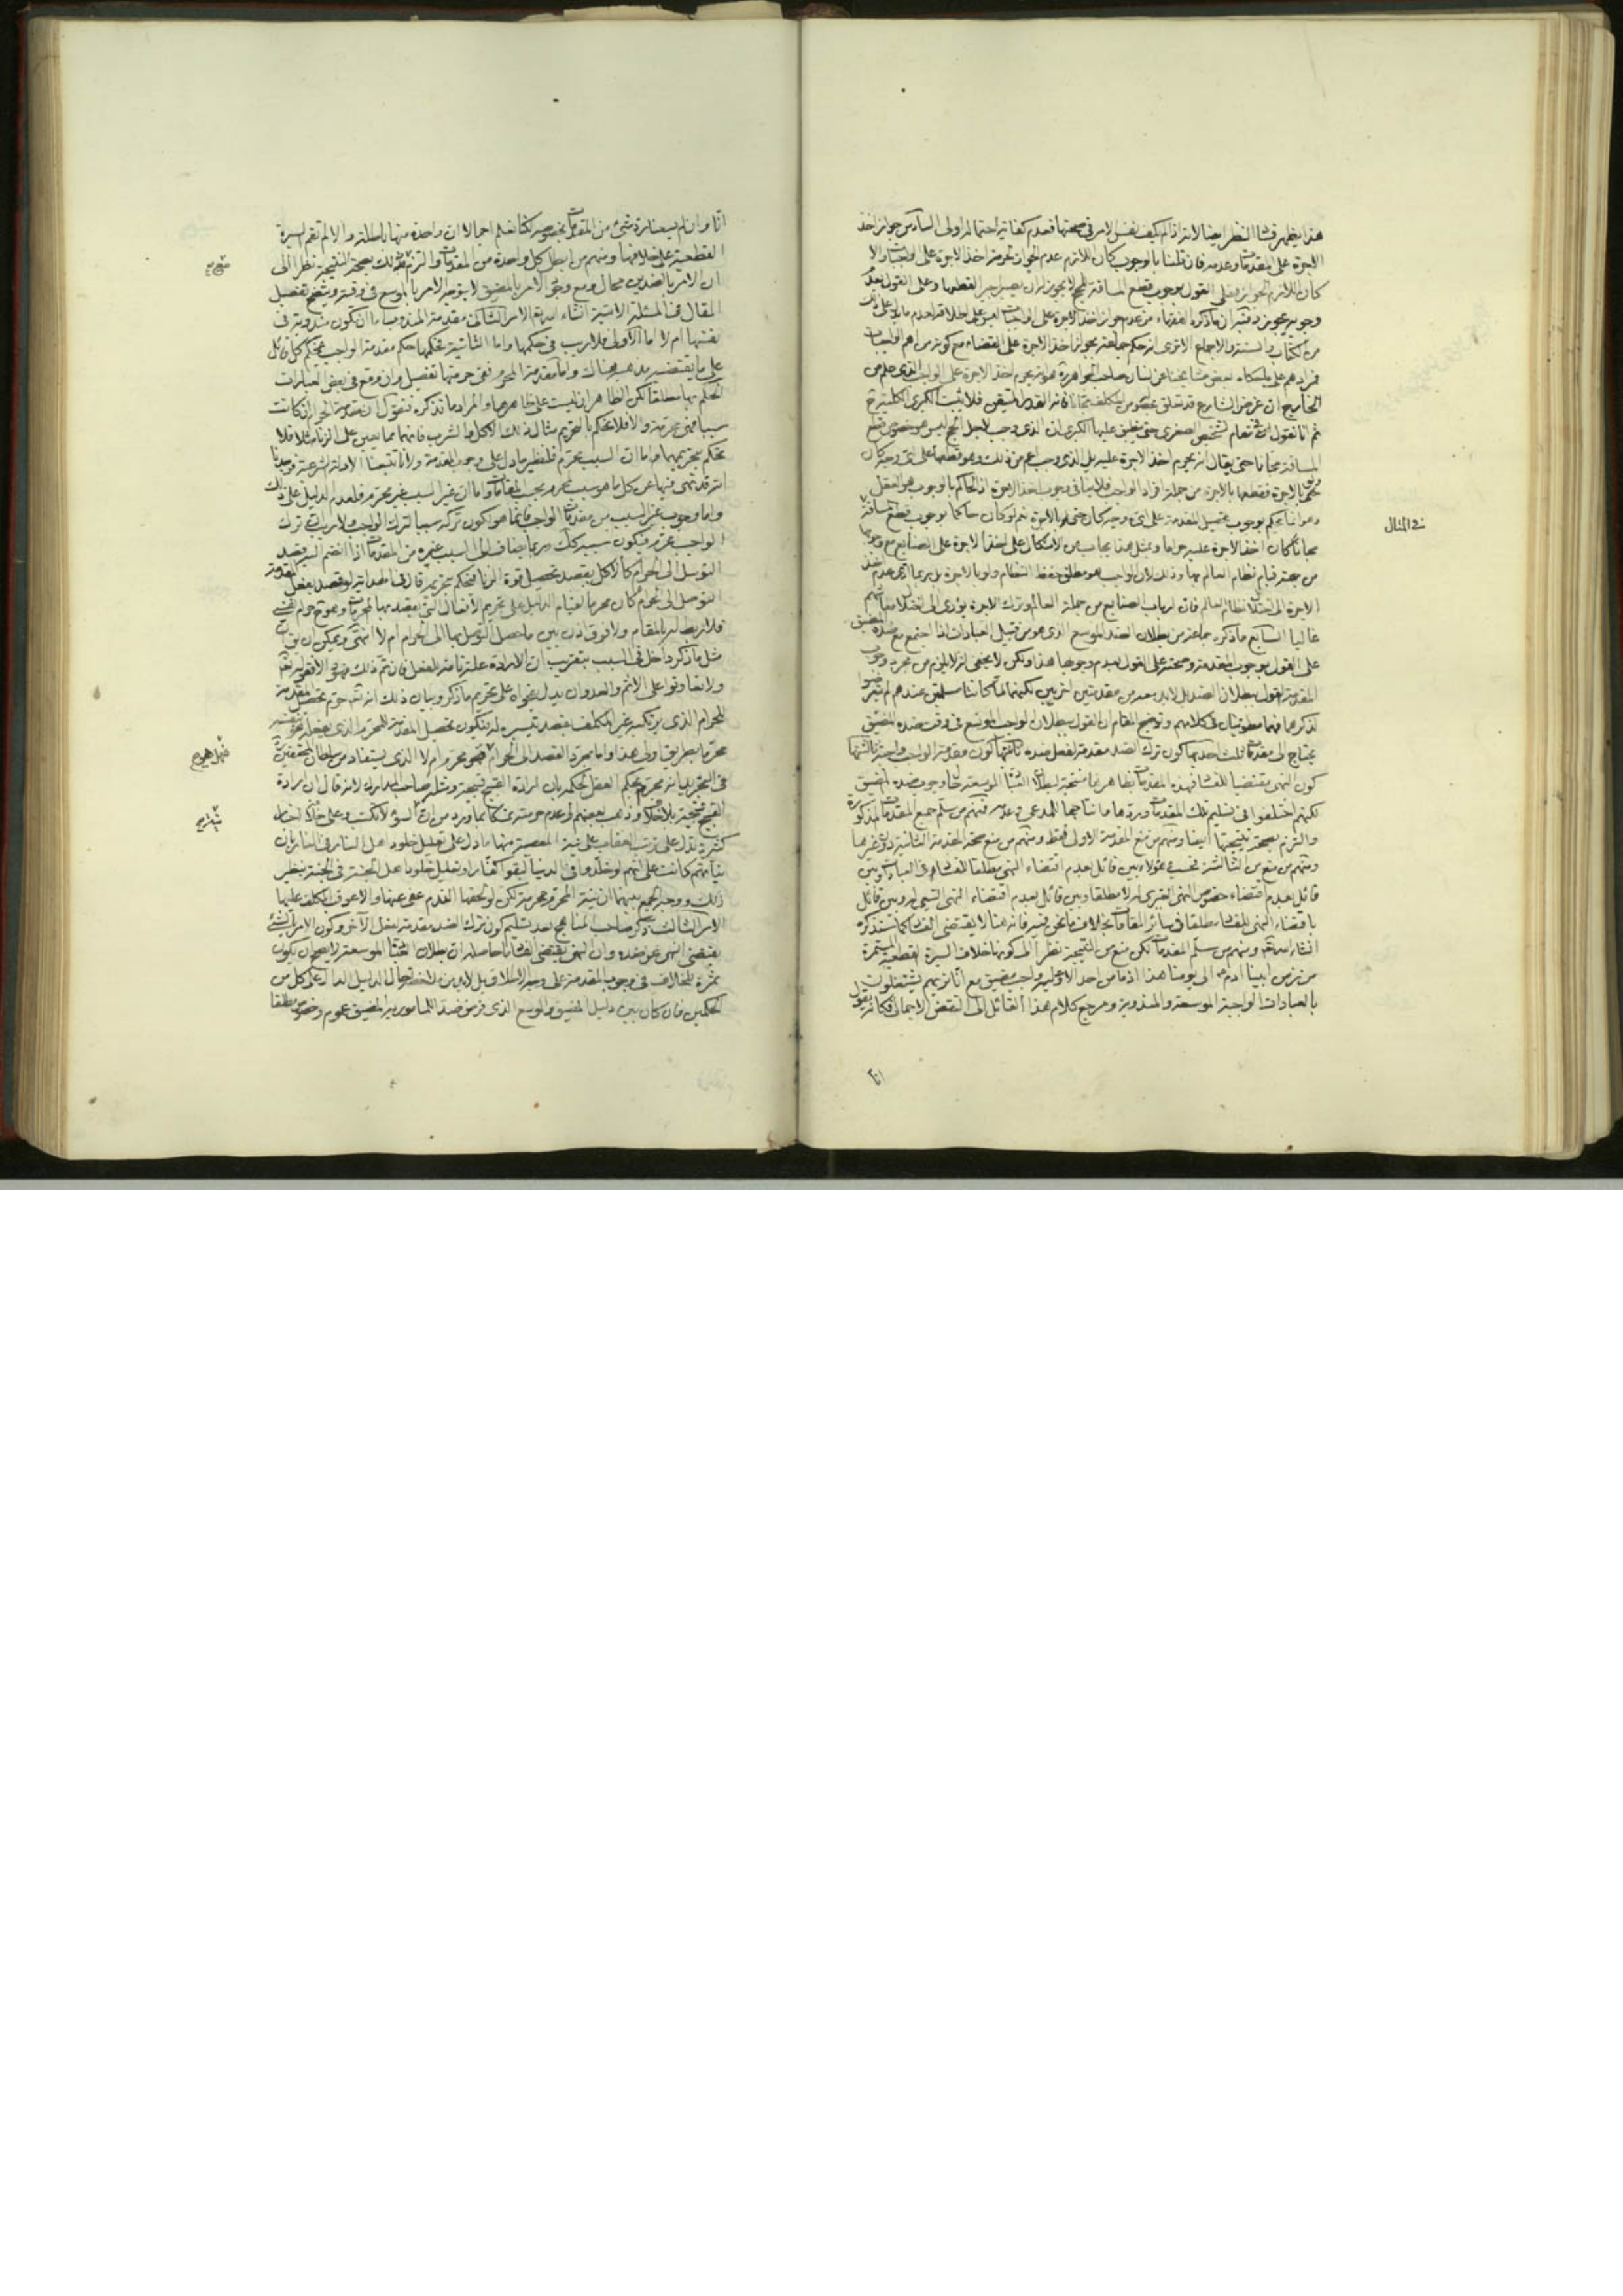 هذا يظهر فساد النظر ايضا لانه اذا لم يكف نفس الامر في صحتها فعدم كفاية احتماله اولى السادس جواز اخذ
الاجرة على المقدمات وعدمه فان قلنا بالوجوب كان اللازم عدم الجواز لحرمة اخذ الاجرة على الواجبات والا
كان اللازم الجواز فعلى القول بوجوب قطع المسافة للحج لا يجوز لمن يصير اجير القطعها وعلى القول بعدم
وجوبه يجوز وفيه ان ما ذكره الفقهاء من عدم جواز اخذ الاجرة على الواجبات ليس على اطلاقه لعدم ما يدل على ذلك
من الكتاب والسنة والاجماع الا ترى انه حكم جماعة بجواز اخذ الاجرة على القضاء مع كونه من اهم الواجبات
فمرادهم على ما حكاه بعض مشايخنا عن لسان صاحب الجواهر ره هو انه يحرم اخذ الاجرة على الواجب الذي علم من
الخارج ان غرض الشارع قد تعلق بصدوره من المكلف مجانا فانه القدر المتيقن فلا يثبت الكبرى الكلية
ثم انا نقول في مقام تشخيص الصغرى حتى ينطبق عليها الكبرى ان الذي وجب لاجل الحج ليس هو خصوص قطع
المسافة مجانا حتى يقال انه يحرم اخذ الاجرة عليه بل الذي وجب اعم من ذلك وهو قطعها على اي وجه كان
ولو بالاجرة فقطعها بالاجرة من جملة افراد الواجب فلا ينافي وجوبه اخذ الاجرة اذ الحاكم بالوجوب هو العقل
وهو انما يحكم بوجوب تحصيل المقدمة على اي وجه كان حتى لو بالاجرة نعم لو كان حاكما بوجوب قطع المسافة
في المثال
مجانا كان اخذ الاجرة عليه حراما وبمثل هذا يجاب عن الاشكال على اخذ الاجرة على الصنايع مع وجوبها
من جهة قيام نظام العالم بها وذلك لان الواجب هو مطلق حفظ النظام ولو بالاجرة بل ربما ادى عدم اخذ
الاجرة الى اختلال نظام العالم فان ارباب الصنايع من جملة العالم وترك الاجرة يؤدي الى اختلال معاشهم
غالبا السابع ما ذكره جماعة من بطلان الضد الموسع الذي هو من قبيل العبادات اذا اجتمع مع ضده المضيق
على القول بوجوب المقدمة وصحته على القول بعدم وجوبها هذا ولكن لا يخفى انه لا يلزم من مجرد وجوب
المقدمة القول ببطلان الضد بل لا بد بعده من مقدمتين اخريين لكنهما لما كانتا مسلمتين عندهم لم يتعرضوا
لذكرهما فهما مطويتان في كلامهم وتوضيح المقام ان القول ببطلان الواجب الموسع في وقت ضده المضيق
يحتاج الى مقدمات ثلث احدها كون ترك الضد مقدمة لفعل ضده ثانيها كون مقدمة الواجب واجبة ثالثها
كون النهي مقتضيا للفساد فهذه المقدمات بظاهرها منتجة لبطلان العبادات الموسعة حال وجوب ضده المضيق
لكنهم اختلفوا في تسليم تلك المقدمات وردها وانتاجها للمدعى وعدمه فمنهم من سلم جميع المقدمات المذكورة
والتزم بصحة نتيجتها ايضا ومنهم من منع المقدمة الاولى فقط ومنهم من منع صحة المقدمة الثانية دون غيرها
ومنهم من منع من الثالثة فحسب وهؤلاء بين قائل بعدم اقتضاء النهي مطلقا للفساد في العبادات وبين
قائل بعدم اقتضاء خصوص النهي الغيري له لا مطلقا وبين قائل بعدم اقتضاء النهي التبعي له وبين قائل
باقتضاء النهي للفساد مطلقا في سائر المقامات بخلاف ما نحن فيه فانه هنا لا يقتضي الفساد كما سنذكره
انشاء الله تعالى ومنهم من سلم المقدمات لكن منع من النتيجة نظرا الى كونها خلاف السيرة القطعية المستمرة
من زمن ابينا ادم الى يومنا هذا اذ ما من احد الا وعليه واجب مضيق مع انا نريهم يشتغلون
بالعبادات الواجبة الموسعة والمندوبة ومرجع كلام هذا القائل الى النقض الاجمالي فكانه يقول
انا
انا وان لم يسعنا رد شيء من المقدمات بخصوصه لكنا نعلم اجمالا ان واحدة منها باطلة والا لم تقم السيرة
القطعية على خلافها ومنهم من ابطل كل واحدة من المقدمات والتزم مع ذلك بصحة النتيجة نظرا الى
ان الامر بالضدين محال ومع وجود الامر بالمضيق لا يتوجه الامر بالموسع في وقته ويتضح تفصيل
المقال في المسئلة الاتية انشاء الله تعالى الامر الثاني مقدمة المندوب اما ان تكون مندوبة في
نفسها ام لا اما الاولى فلا ريب في حكمها واما الثانية فحكمها حكم مقدمة الواجب فيحكم كل قائل
على ما يقتضيه مذهبه هناك واما مقدمة المحرم ففي حرمتها تفصيل وان وقع في بعض العبارات
الحكم بها مطلقا لكن الظاهر انه ليست على ظاهرها والمراد ما نذكره فنقول ان مقدمة الحرام ان كانت
سببا فهي محرمة والا فلا نحكم بالتحريم مثال ذلك الاكل والشرب فانهما مما يعين على الزنا مثلا فلا
نحكم بتحريمهما اما ان السبب محرم فلنظير ما دل على وجوب المقدمة ولانا تتبعنا الادلة الشرعية فوجدنا
انه قد نهي فيها عن كل ما هو سبب لمحرم بحسب المقامات واما ان غير السبب غير محرم فلعدم الدليل على ذلك
واما وجوب غير السبب من مقدمات الواجب فانما هو لكون تركه سببا لترك الواجب ولا ريب ان ترك
الواجب محرم فيكون سببه كك وربما يضاف الى السبب غيره من المقدمات اذا انضم اليه قصد
التوسل الى الحرام كالاكل بقصد تحصيل قوة الزنا فيحكم بتحريمه قال في الهداية لو قصد بفعل المقدمة
التوصل الى الحرام كان محرما لقيام الدليل على تحريم الافعال التي يقصد بها المحرمات وهو نوع حرام نفسي
فلا ربط له بالمقام ولا فرق اذن بين ما حصل التوسل بها الى الحرام ام لا انتهى ويمكن ان يقال ان
مثل ما ذكر داخل في السبب بتقريب ان الارادة علة تامة للفعل فان تم ذلك فهو والا فقوله تعالى
ولا تعاونوا على الاثم والعدوان يدل بفحواه على تحريم ما ذكر وبيان ذلك انه تعالى حرم تحصيل المقدمة
للحرام الذي يرتكبه غير المكلف بقصد تيسيره له فيكون تحصيل المقدمة للمحرم الذي يفعله هو بنفسه
محرما بطريق اولى هذا واما مجرد القصد الى الحرام فهل هو محرم ام لا الذي يستفاد من سلطان المحققين
فهل هو
في التجريد انه محرم بحكم العقل لحكمه بان ارادة القبيح قبيحة ومثله صاحب المدارك لانه قال ان ارادة
القبيح قبيحة بلا خلاف وذهب بعضهم الى عدم حرمته تمسكا بما ورد من ان السوء لا تكتب وعلى ذلك اخبار
كثيرة تدل على ترتب العقاب على نية المعصية منها ما دل على تعليل خلود اهل النار في النار بان
نياتهم كانت على انهم لو خلدوا في الدنيا لبقوا كفارا وتعليل خلود اهل الجنة في الجنة بنظير
ذلك ووجه الجمع بينهما ان نية المحرم محرمة لكن لو لحقها الندم عفي عنها والا عوقب المكلف عليها
الامر الثالث ذكر صاحب المناهج بعد تسليم كون ترك الضد مقدمة لفعل الآخر وكون الامر بالشيء
يقتضي النهي عن ضده وان النهي يقتضي الفساد ما حاصله ان بطلان العبادات الموسعة لا يصح ان يكون
ثمرة للخلاف في وجوب المقدمة على وجه الاطلاق بل لا بد من ملاحظة حال الدليل الدال على كل من
الحكمين فان كان بين دليل المضيق والموسع الذي فرض ضدا للمامور به المضيق عموم وخصوص مطلقا